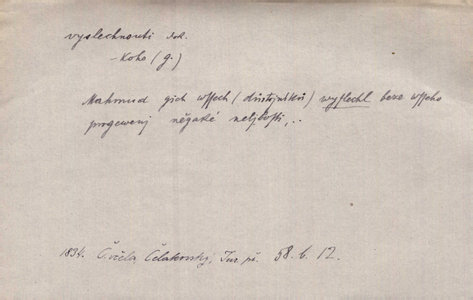 vyslechnouti dok.
- koho (g.)
Mahmud gich wssech (důstojníků) wyslechl beze wsseho
progewenj nějaké neljbosti,..
1834. Čela Čelakovský, 58. b. 12.